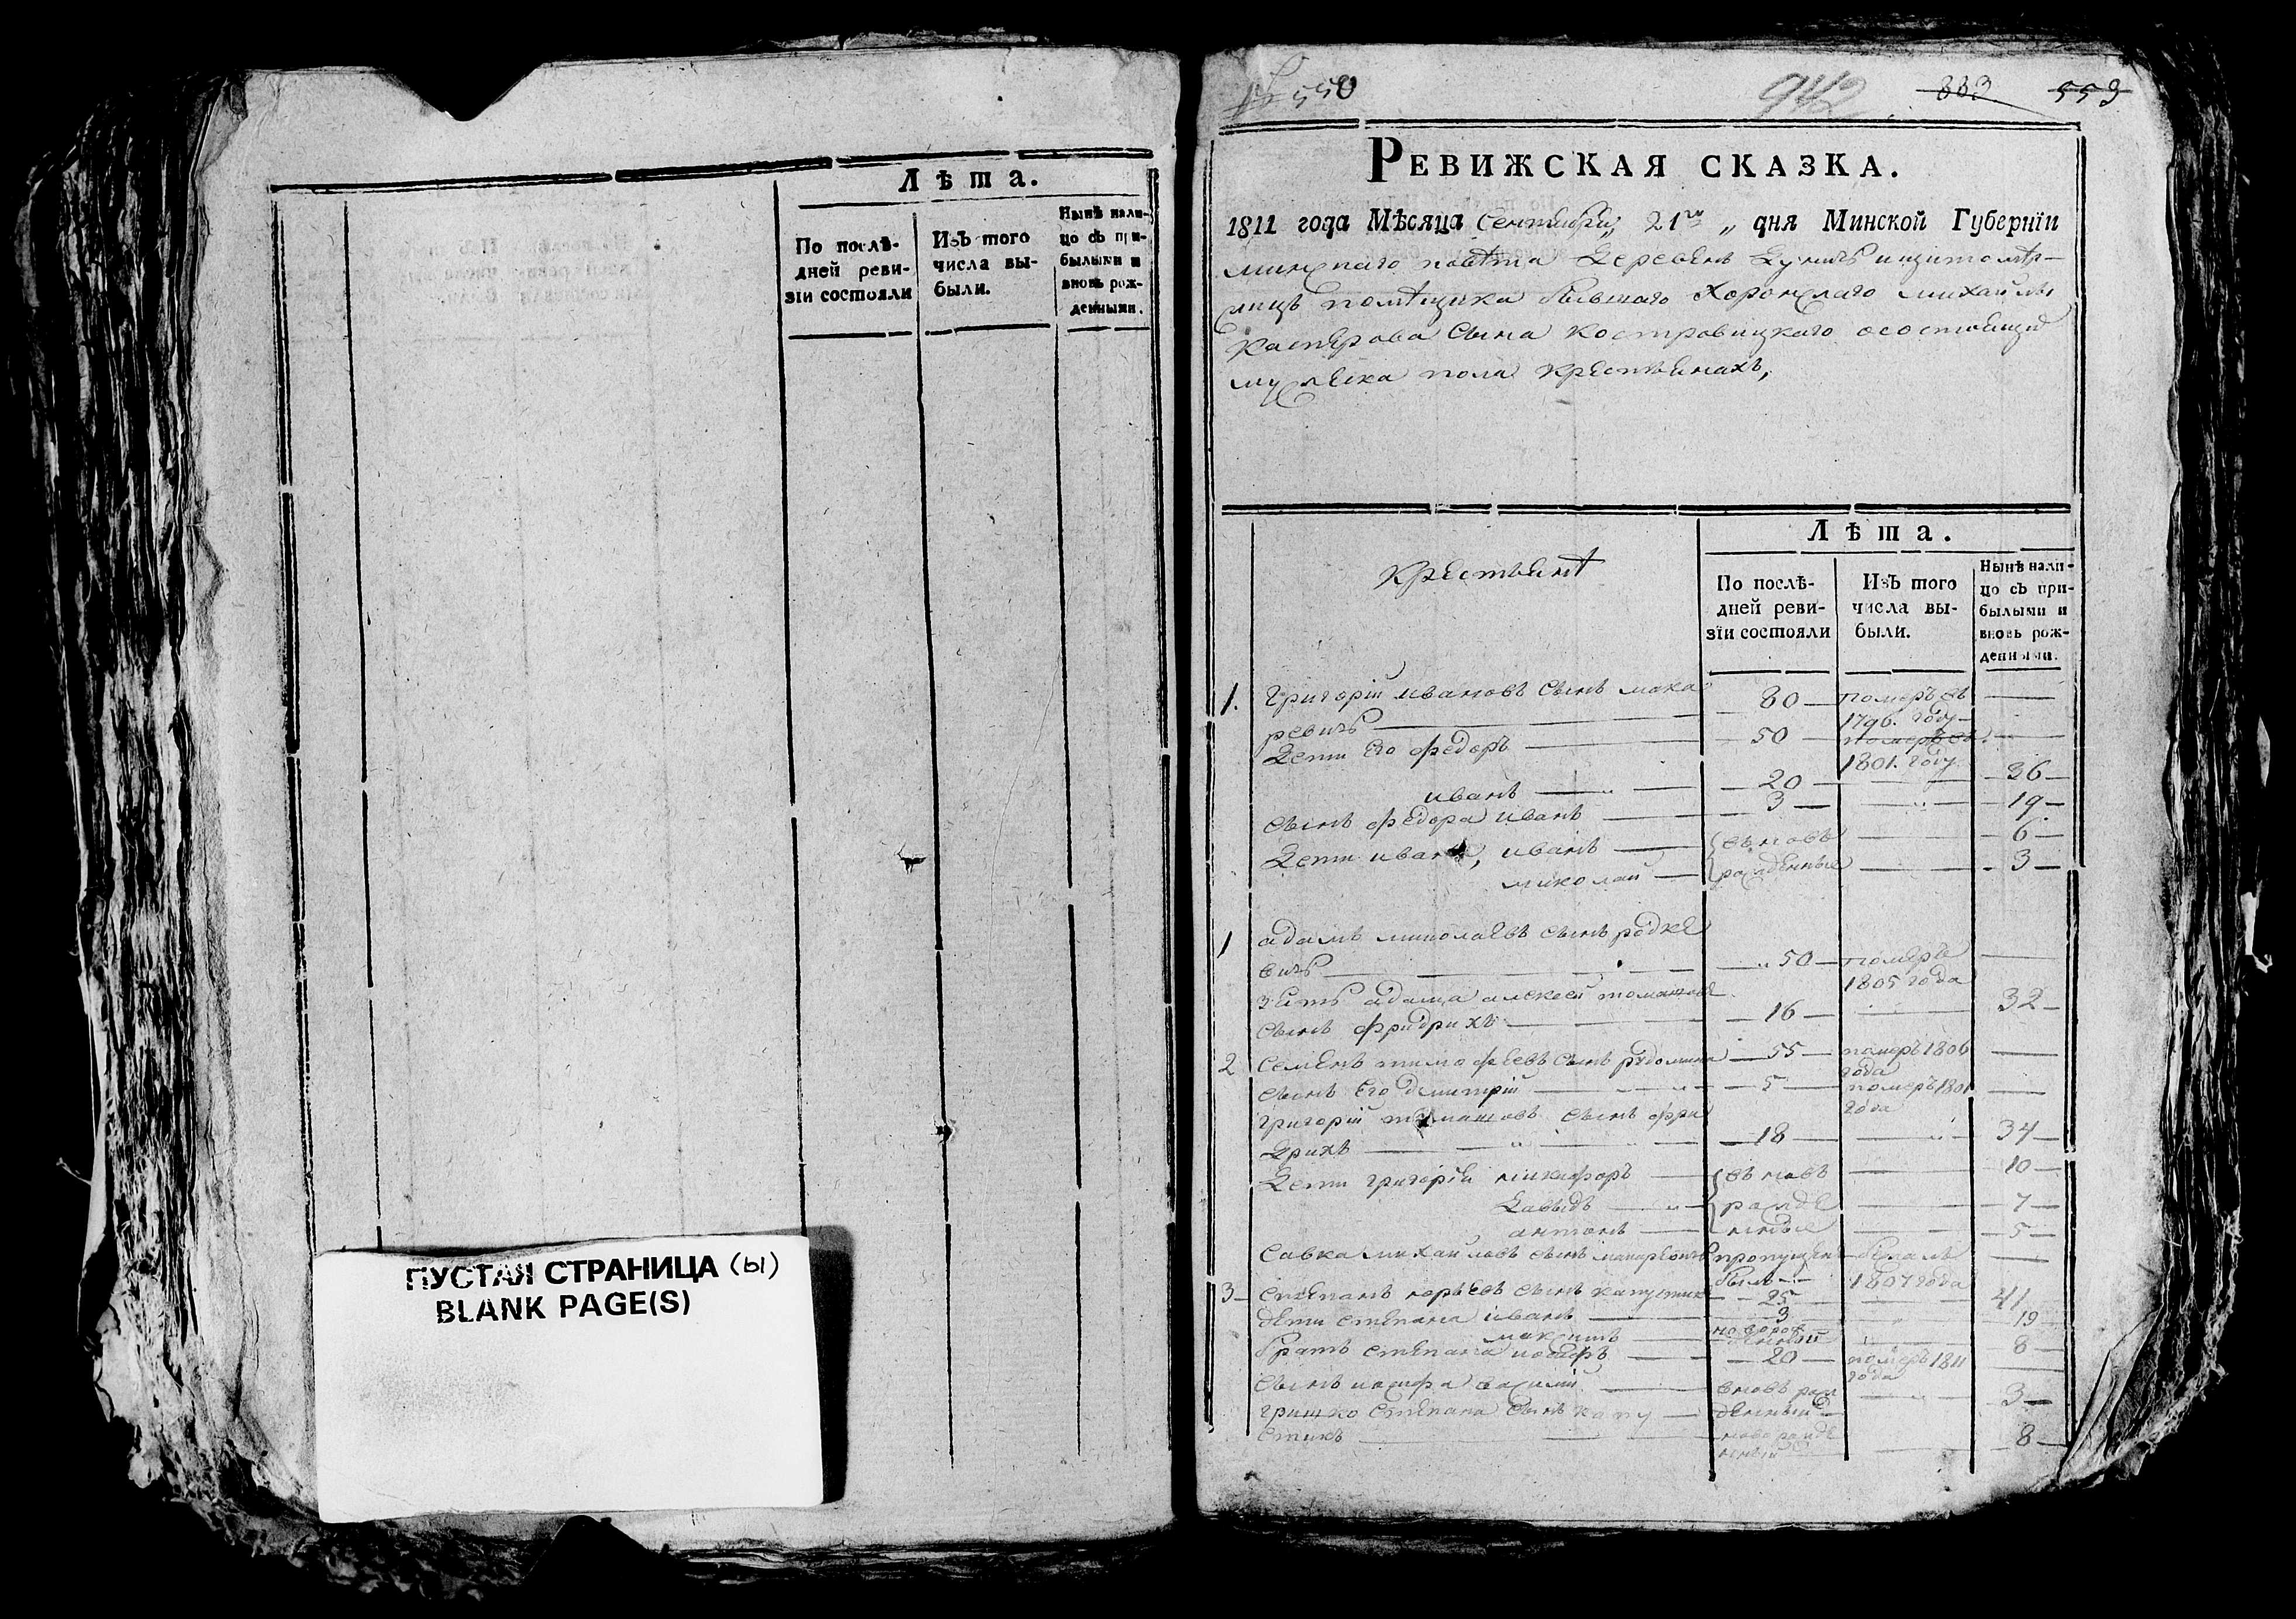 Лѣта.
По послѣ-
дней реви-
зіи состояли
Изъ того
числа вы-
были.
Нынѣ нали-
цо съ при-
былыми и
вновь рож-
денными.
ПУСТАЯ СТРАНИЦА (ы)
BLANK PAGE(S)
550
942
333
553
Ревижская сказка.
1811 года Мѣсяца Сентября 21го дня Минской Губернїи
минскаго повѣта деревень
помѣщика бывшаго Хоронжаго михайлы
касперова сына костровицкаго осостоящих
мужеска пола крестьянахъ,
Крестьянѣ
Лѣта.
По послѣ-
дней реви-
зїи состояли
Изъ того
числа вы-
были.
Нынѣ нали-
цо съ при-
былыми и
вновь рож-
денными.
1. Григорій ивановъ сынъ мака 80 померъ въ
ревичъ 1796. году
Дети его федоръ 50 померъ въ
1801. году
иванъ 20 36
сынъ федора иванъ 3 19
Дети ивана, иванъ вновь 6
миколай рожденные 3
1 адамъ миколаевъ сынъ родке
вичъ 50 померъ
1805 года
зять адама алексей томашовъ
сынъ фридрихъ 16 32
2 Семенъ тимофеевъ сынъ 55 померъ 1806
года
сынъ его дмитрій 5 померъ 1801
года
григорій томашовъ сынъ фри
дрихъ 18 34
Дети григорія никифоръ вновь 10
Давыдъ рожде 7
антонъ нные 5
Савка михайловъ сынъ пропущенъ бежалъ
былъ 1807 года
3 степанъ юрьевъ сынъ капустик 25 41
дети степана иванъ 3 19
максимъ новорож
денный 8
братъ степана иосифъ 20 померъ 1811
года
сынъ иосифа василий вновь рож
денный 3
гришко степана сынъ капу
стикъ новорожде
нный 8